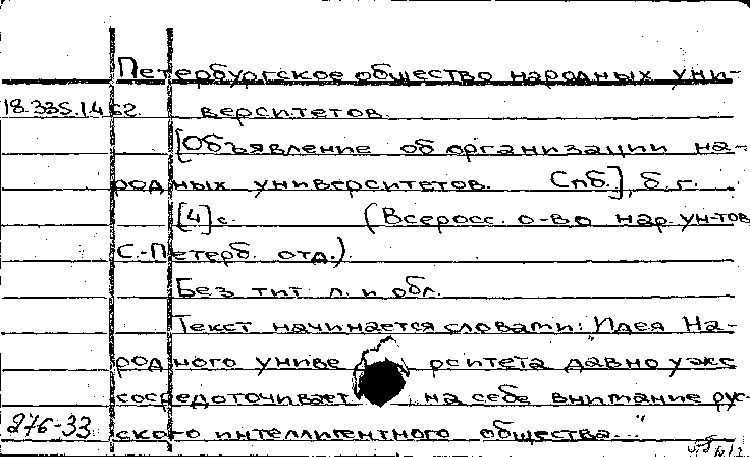 Петербургское общество народных уни-
18.335.14.62. верситетов.
[Объявление об организации на-
родных университетов. Спб.], б. г.
[4] с. (Всеросс. о-во нар. ун-тов
С.-Петерб. отд.)
Без тит. л. и обл.
Текст начинается словами: "Идея На-
родного универсitета давно уже
сосредоточивает на себе внимание рус-
276-33 ского интеллигентного общества..."